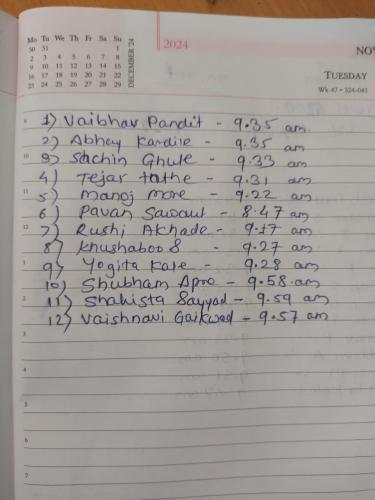 Mo Tu We Th Fr Sa Su
30 31 1
2 3 4 5 6 7 8
9 10 11 12 13 14 15
16 17 18 19 20 21 22
23 24 25 26 27 28 29
DECEMBER '24
2024
NOV
TUESDAY
Wk 47 • 324-041
1) Vaibhav Pandit - 9.35 am.
2) Abhey Kardile - 9.35 am
3) Sachin Ghule - 9.33 am
4) Tejar tathe - 9.31 am
5) manoj more - 9.22 am
6) Pavan Sawant - 8.47 am
7) Rushi Akhade - 9.17 am
8) Khushaboo S - 9.27 am
9) Yogita Kale - 9.28 am
10) Shubham Apro - 9.58 am
11) Shahista Sayyad - 9.59 am
12) Vaishnavi Gaikwad - 9.57 am